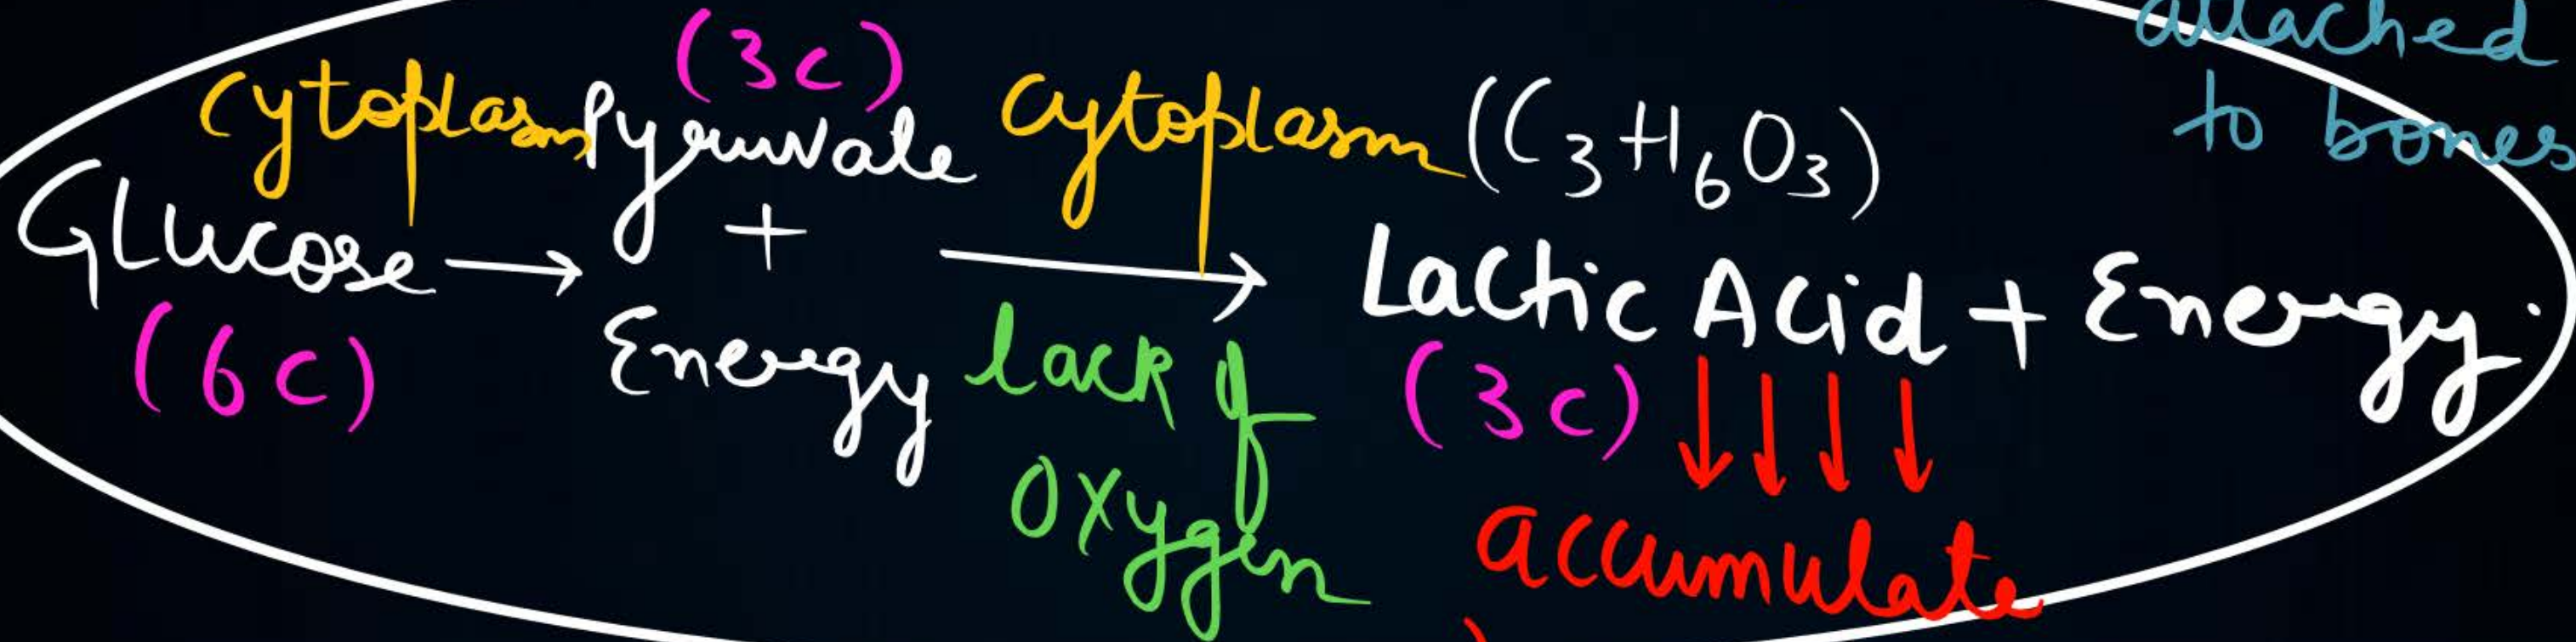 attached
to bones
(3c)
Cytoplasm Pyruvate Cytoplasm (C3H6O3)
+
Glucose → Lactic Acid + Energy.
(6c) Energy lack of (3c)
oxygen accumulate